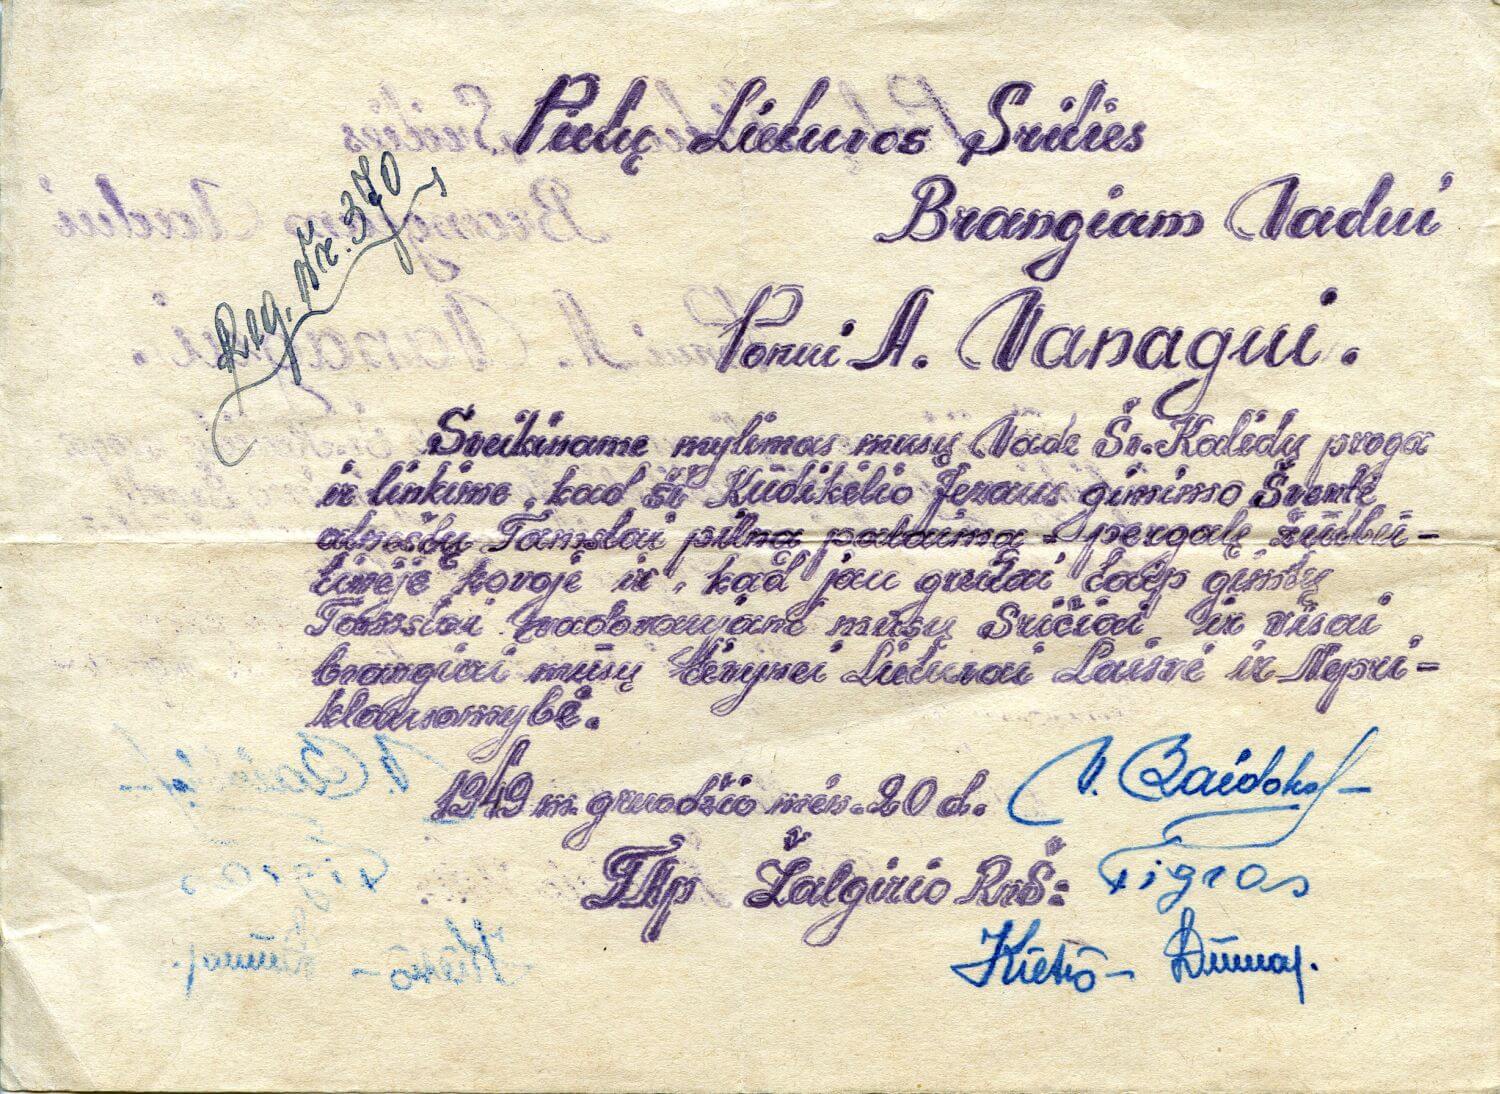 Pietų Lietuvos Srities
Brangiam Vadui
Reg. Nr. 370
Ponui A. Vanagui.
Sveikiname mylimas mūsų Vade Šv. Kalėdų proga
ir linkime, kad ši Kūdikėlio Jėzaus gimimo Šventė
atneštų Tamstai pilną pataimą - pergalę žūtbū-
tinėje kovoje ir, kad jau greitai taip gimtų
Tamstai vadovaujant mūsų Sričiai ir visai
brangiai mūsų Tėvynei Lietuvai Laisvė ir Nepri-
klausomybė.
1949 m. gruodžio mėn. 20 d.
V. Baidok
Žalgirio Rnš: Tigras
Kietis -